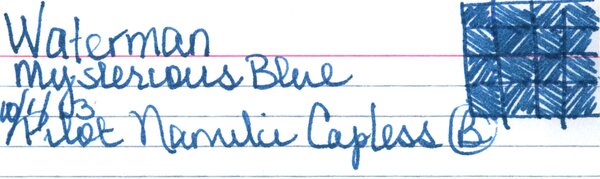 Waterman
Mysterious Blue
10/1/13
Pilot Namiki Capless B